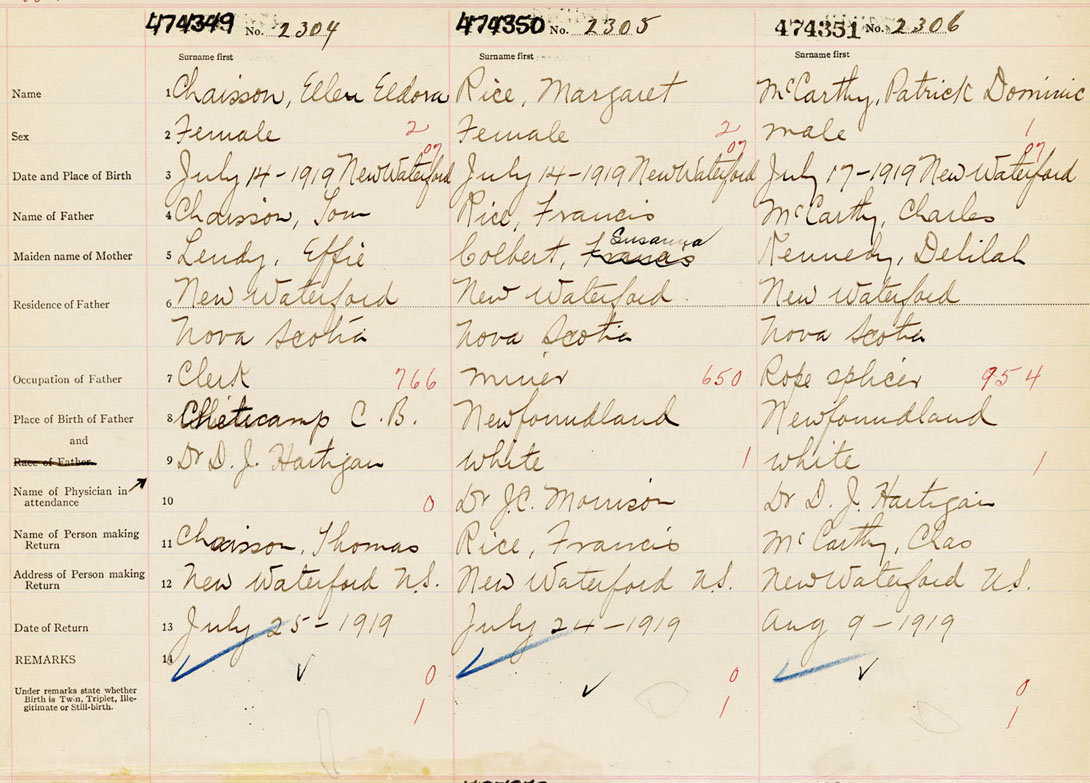 474349 No. 2304 474350 No. 2305 474351 No. 2306
Surname first Surname first Surname first
Name 1 Chaisson, Ellen Eldora Rice, Margaret McCarthy, Patrick Dominic
Sex 2 Female 2 Female 2 male 1
07 07 07
Date and Place of Birth 3 July 14-1919 New Waterford July 14-1919 New Waterford July 17-1919 New Waterford
Name of Father 4 Chaisson, Tom Rice, Francis McCarthy, Charles
Susanna
Maiden name of Mother 5 Lendy, Effie Colbert, Francis Kennedy, Delilah
Residence of Father 6 New Waterford New Waterford New Waterford
Nova Scotia Nova Scotia Nova Scotia
Occupation of Father 7 Clerk 766 miner 650 Rope splicer 954
Place of Birth of Father 8 Cheticamp C.B. Newfoundland Newfoundland
and
Race of Father 9 Dr D. J. Hartigan white 1 white 1
Name of Physician in
attendance 10 0 Dr J.C. Morrison Dr D. J. Hartigan
Name of Person making
Return 11 Chaisson, Thomas Rice, Francis McCarthy, Chas
Address of Person making
Return 12 New Waterford N.S. New Waterford N.S. New Waterford N.S.
Date of Return 13 July 25-1919 July 24-1919 Aug 9-1919
REMARKS 14
0 0 0
Under remarks state whether
Birth is Twin, Triplet, Ille-
gitimate or Still-birth.
1 1 1